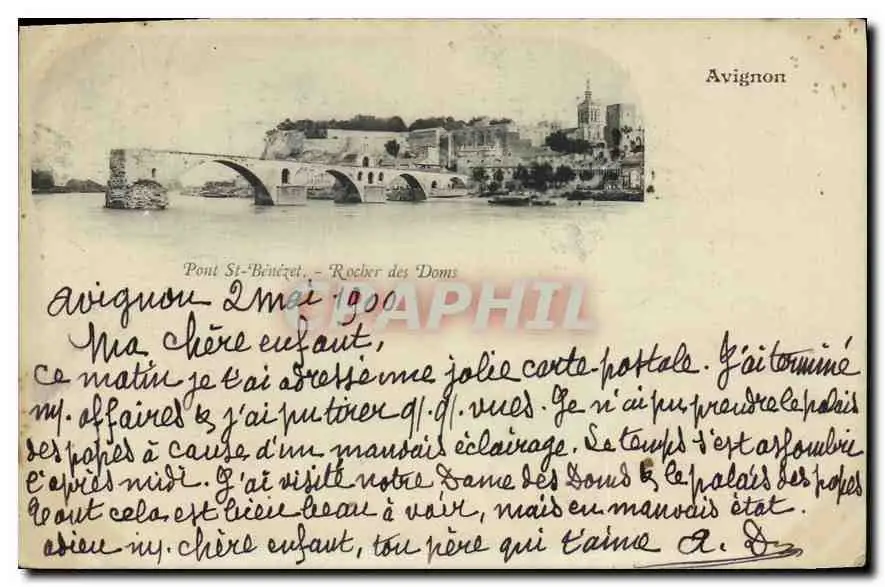 Avignon
Pont St-Bénézet. - Rocher des Doms
CPAPHIL
Avignon 2 mai 1900
Ma chère enfant,
Ce matin je t'ai adressé une jolie carte-postale. J'ai terminé
my. affaires & j'ai pu tirer q/. q/. vues. Je n'ai pu prendre le palais
des papes à cause d'un mauvais éclairage. Le temps s'est assombri
l'après midi. J'ai visité notre Dame des Doms & le palais des papes
Tout cela est bien beau à voir, mais en mauvais état.
adieu my. chère enfant, ton père qui t'aime A. D